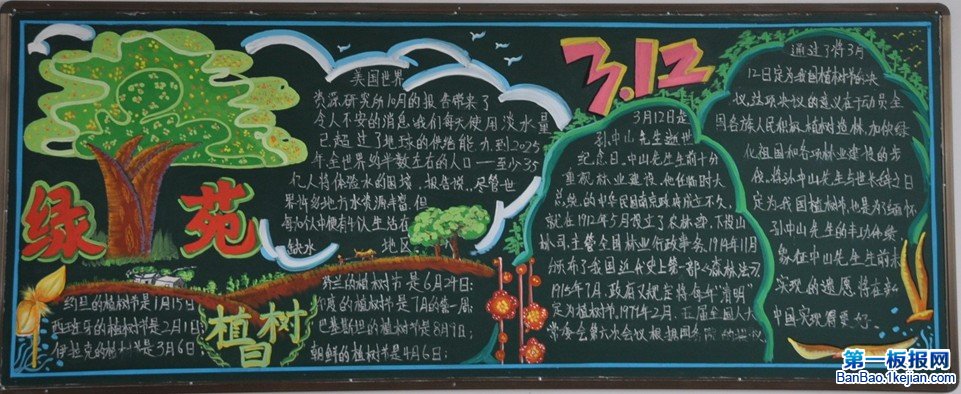 绿苑
美国世界
资源研究所10月的报告带来了
令人不安的消息:我们每天使用淡水量
已超过了地球的供给能力,到2025
年全世界约半数左右的人口——至少35
亿人将体验水的困境,报告说,尽管世
界许多地方水资源丰富,但
每
人生活在
缺水
地区
约旦的植树节是1月15日
西班牙的植树节是2月1日;
伊拉克的植树节是3月6日;
植树日
的植树节是6月24日;
印度的植树节是7月的第一周;
巴基斯坦的植树节是8月9日;
朝鲜的植树节是4月6日;
3.12
3月12日是
孙中山先生逝世
纪念日。中山先生生前十分
重视林业建设。他任临时大
总统的中华民国南京政府成立不久,
就在1912年5月设立了农林部,下设山
林司,主管全国林业行政事务,1914年11月
颁布了我国近代史上第一部《森林法》,
1915年7月,政府又规定将每年"清明"
定为植树节。1979年2月,五届全国人大
常委会第六次会议根据国务院的提议
通过了将3月
12日定为我国植树节的决
议,这项决议的意义在于动员全
国各族人民积极植树造林,加快绿
化祖国和各项林业建设的步
伐。将孙中山先生与世长辞之日
定为我国植树节,也是为了缅怀
孙中山先生的丰功伟绩
象征中山先生生前未
实现的遗愿将在新
中国实现得更好
第一板报网
BanBao.1kejian.com